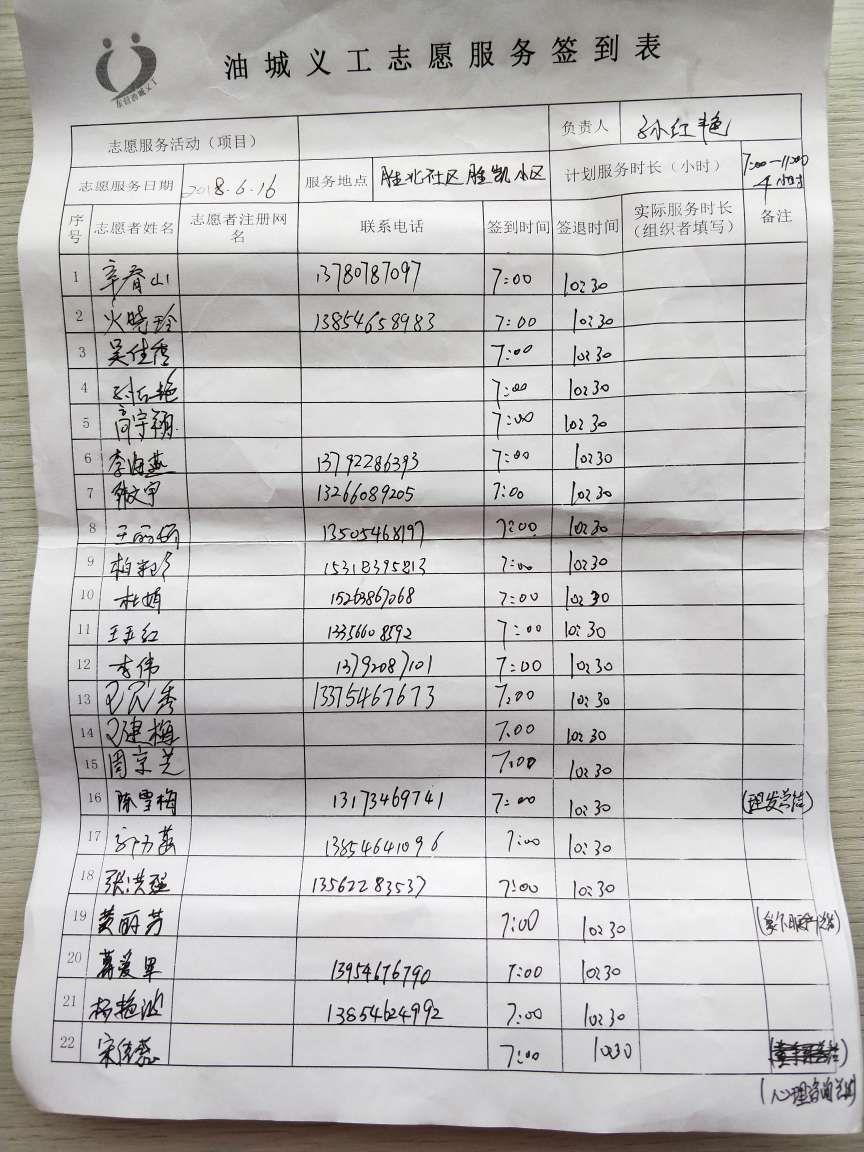 东营油城义工
油城义工志愿服务签到表
志愿服务活动（项目） 负责人 孙红艳
志愿服务日期 2018.6.16 服务地点 胜北社区胜凯小区 计划服务时长（小时） 7:00—11:00 4小时
序号 志愿者姓名 志愿者注册网名 联系电话 签到时间 签退时间 实际服务时长（组织者填写） 备注
1 辛春山 13780787097 7:00 10:30
2 火晓玲 13854658983 7:00 10:30
3 吴佳秀 7:00 10:30
4 7:00 10:30
5 高宇颖 7:00 10:30
6 李海燕 13792286393 7:00 10:30
7 韩文宇 13266089205 7:00 10:30
8 王丽娇 13505468197 7:00 10:30
9 15318395813 7:00 10:30
10 杜娟 15263867068 7:00 10:30
11 王玉红 13356608592 7:00 10:30
12 李伟 13792087101 7:00 10:30
13 13375467673 7:00 10:30
14 建梅 7:00 10:30
15 周京芝 7:00 10:30
16 陈雪梅 13173469741 7:00 10:30 (理发总结)
17 13854641096 7:00 10:30
18 张洪强 13562283537 7:00 10:30
19 黄丽芳 7:00 10:30
20 爱军 13954676790 7:00 10:30
21 杨艳波 13854624992 7:00 10:30
22 宋 7:00 10:30
(心理咨询总结)